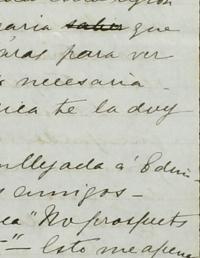 aria saber que
aras para ver
necesaria.
ica te la doy
llegada á Edin-
s amigos—
ea "No prospects
"— Esto me apena